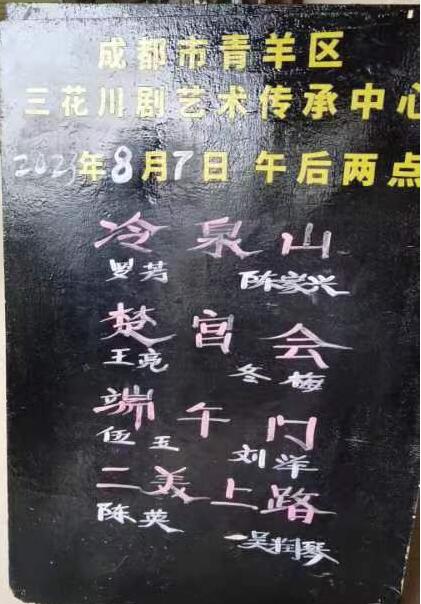 成都市青羊区
三花川剧艺术传承中心
2023年8月7日 午后两点
冷泉山
罗芳 陈家兴
楚宫会
王亮 冬梅
端午门
伍五 刘洋
二美上路
陈英 吴润琴